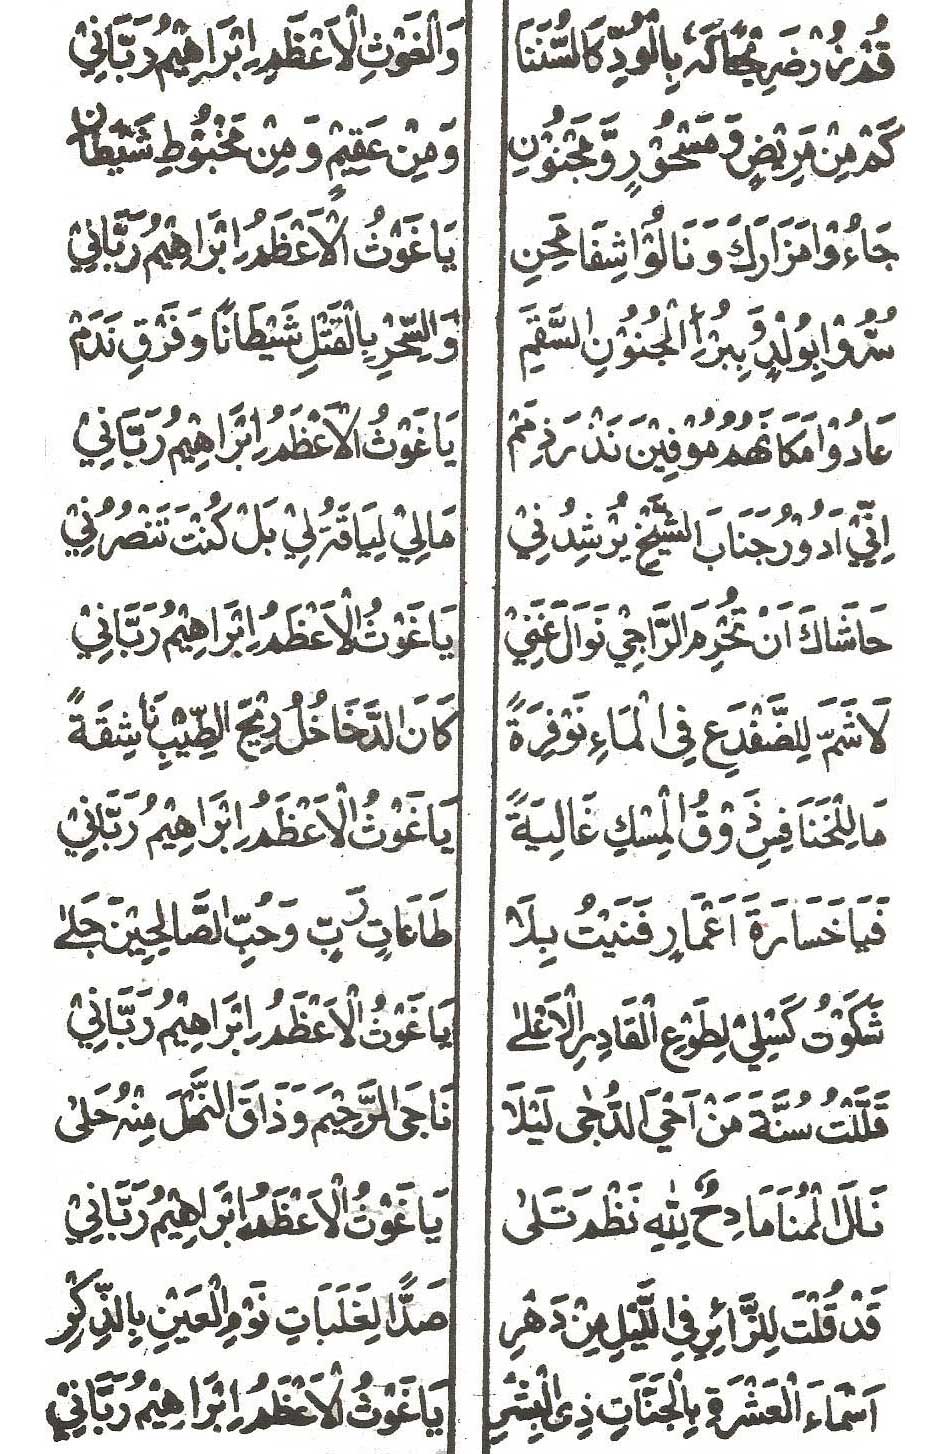 قُمْ زُرْ ضَرِيْحًا لَهُ بِالْوُدِّ كَالسُّنَنَا وَالْغَوْثِ الْاَعْظَمِ اِبْرَاهِيْمُ رَبَّانِيْ
كَمْ مِنْ مَرِيْضٍ وَمَسْحُوْرٍ وَّمَجْنُوْنٍ وَمِنْ عَقِيْمٍ وَمِنْ مَخْبُوْطِ شَيْطَانٍ
جَاءُوْا مَزَارَكَ وَنَالُوْا شِفَا مَحِنٍ يَاغَوْثُ الْاَعْظَمُ اِبْرَاهِيْمُ رَبَّانِيْ
سُرُّوْا بِوُلْدٍ وَبِبُرْأِ الْجُنُوْنِ السَّقَمِ وَالسِّحْرِ بِالْقَتْلِ شَيْطَانًا وَفَرْقِ نَدَمْ
عَادُوْا مَكَانَهُمُ مُوْفِيْنَ نَذْرَ ذِمَمْ يَاغَوْثُ الْاَعْظَمُ اِبْرَاهِيْمُ رَبَّانِيْ
اِنِّيْ اَدُوْرُ جَنَابَ الشَّيْخِ يُرْشِدُنِيْ مَالِيْ لِيَاقَةُ لِيْ بَلْ كُنْتَ تَنْصُرُنِيْ
حَاشَاكَ اَنْ تُحْرِمَ الرَّاجِيْ نَوَالَ غَنِيْ يَاغَوْثُ الْاَعْظَمُ اِبْرَاهِيْمُ رَبَّانِيْ
لَاشَمَّ لِلضَّفْدَعِ فِى الْمَاءِ نَوْفِرَةً كَانَ الدَّخَاخُلُ رِيْحَ الطِّيْبِ نَاشِقَةً
مَا لِلْخَنَافِسِ ذَوْقُ الْمِسْكِ غَالِيَةً يَاغَوْثُ الْاَعْظَمُ اِبْرَاهِيْمُ رَبَّانِيْ
فَيَا خَسَارَةَ اَعْمَارٍ فَنَيْتُ بِلَا طَاعَاتِ رَبٍّ وَحُبِّ الصَّالِحِيْنَ جَلٰى
شَكَوْتُ كَسْلِيْ لِطَوْعِ الْقَادِرِ الْاَعْلٰى يَاغَوْثُ الْاَعْظَمُ اِبْرَاهِيْمُ رَبَّانِيْ
قَلَّلْتُ سُنَّةَ مَنْ اَحْيَ الدُّجٰى لَيْلًا نَاجَى الرَّحِيْمَ وَذَاقَ النَّهْلَ مِنْهُ حَلٰى
نَالَ الْمُنَا مَادِحٌ لِلّٰهِ نَظْمَ تَلٰى يَاغَوْثُ الْاَعْظَمُ اِبْرَاهِيْمُ رَبَّانِيْ
قَدْ قُلْتَ لِلزَّائِرِ فِى اللَّيْلِ مِنْ دَهْرِ صَدًّا لِغَلَبَاتِ نَوْمِ الْعَيْنِ بِالذِّكْرِ
اَسْمَاءَ الْعَشْرَةِ بِالْجَنَّاتِ ذِى الْبِشْرِ يَاغَوْثُ الْاَعْظَمُ اِبْرَاهِيْمُ رَبَّانِيْ